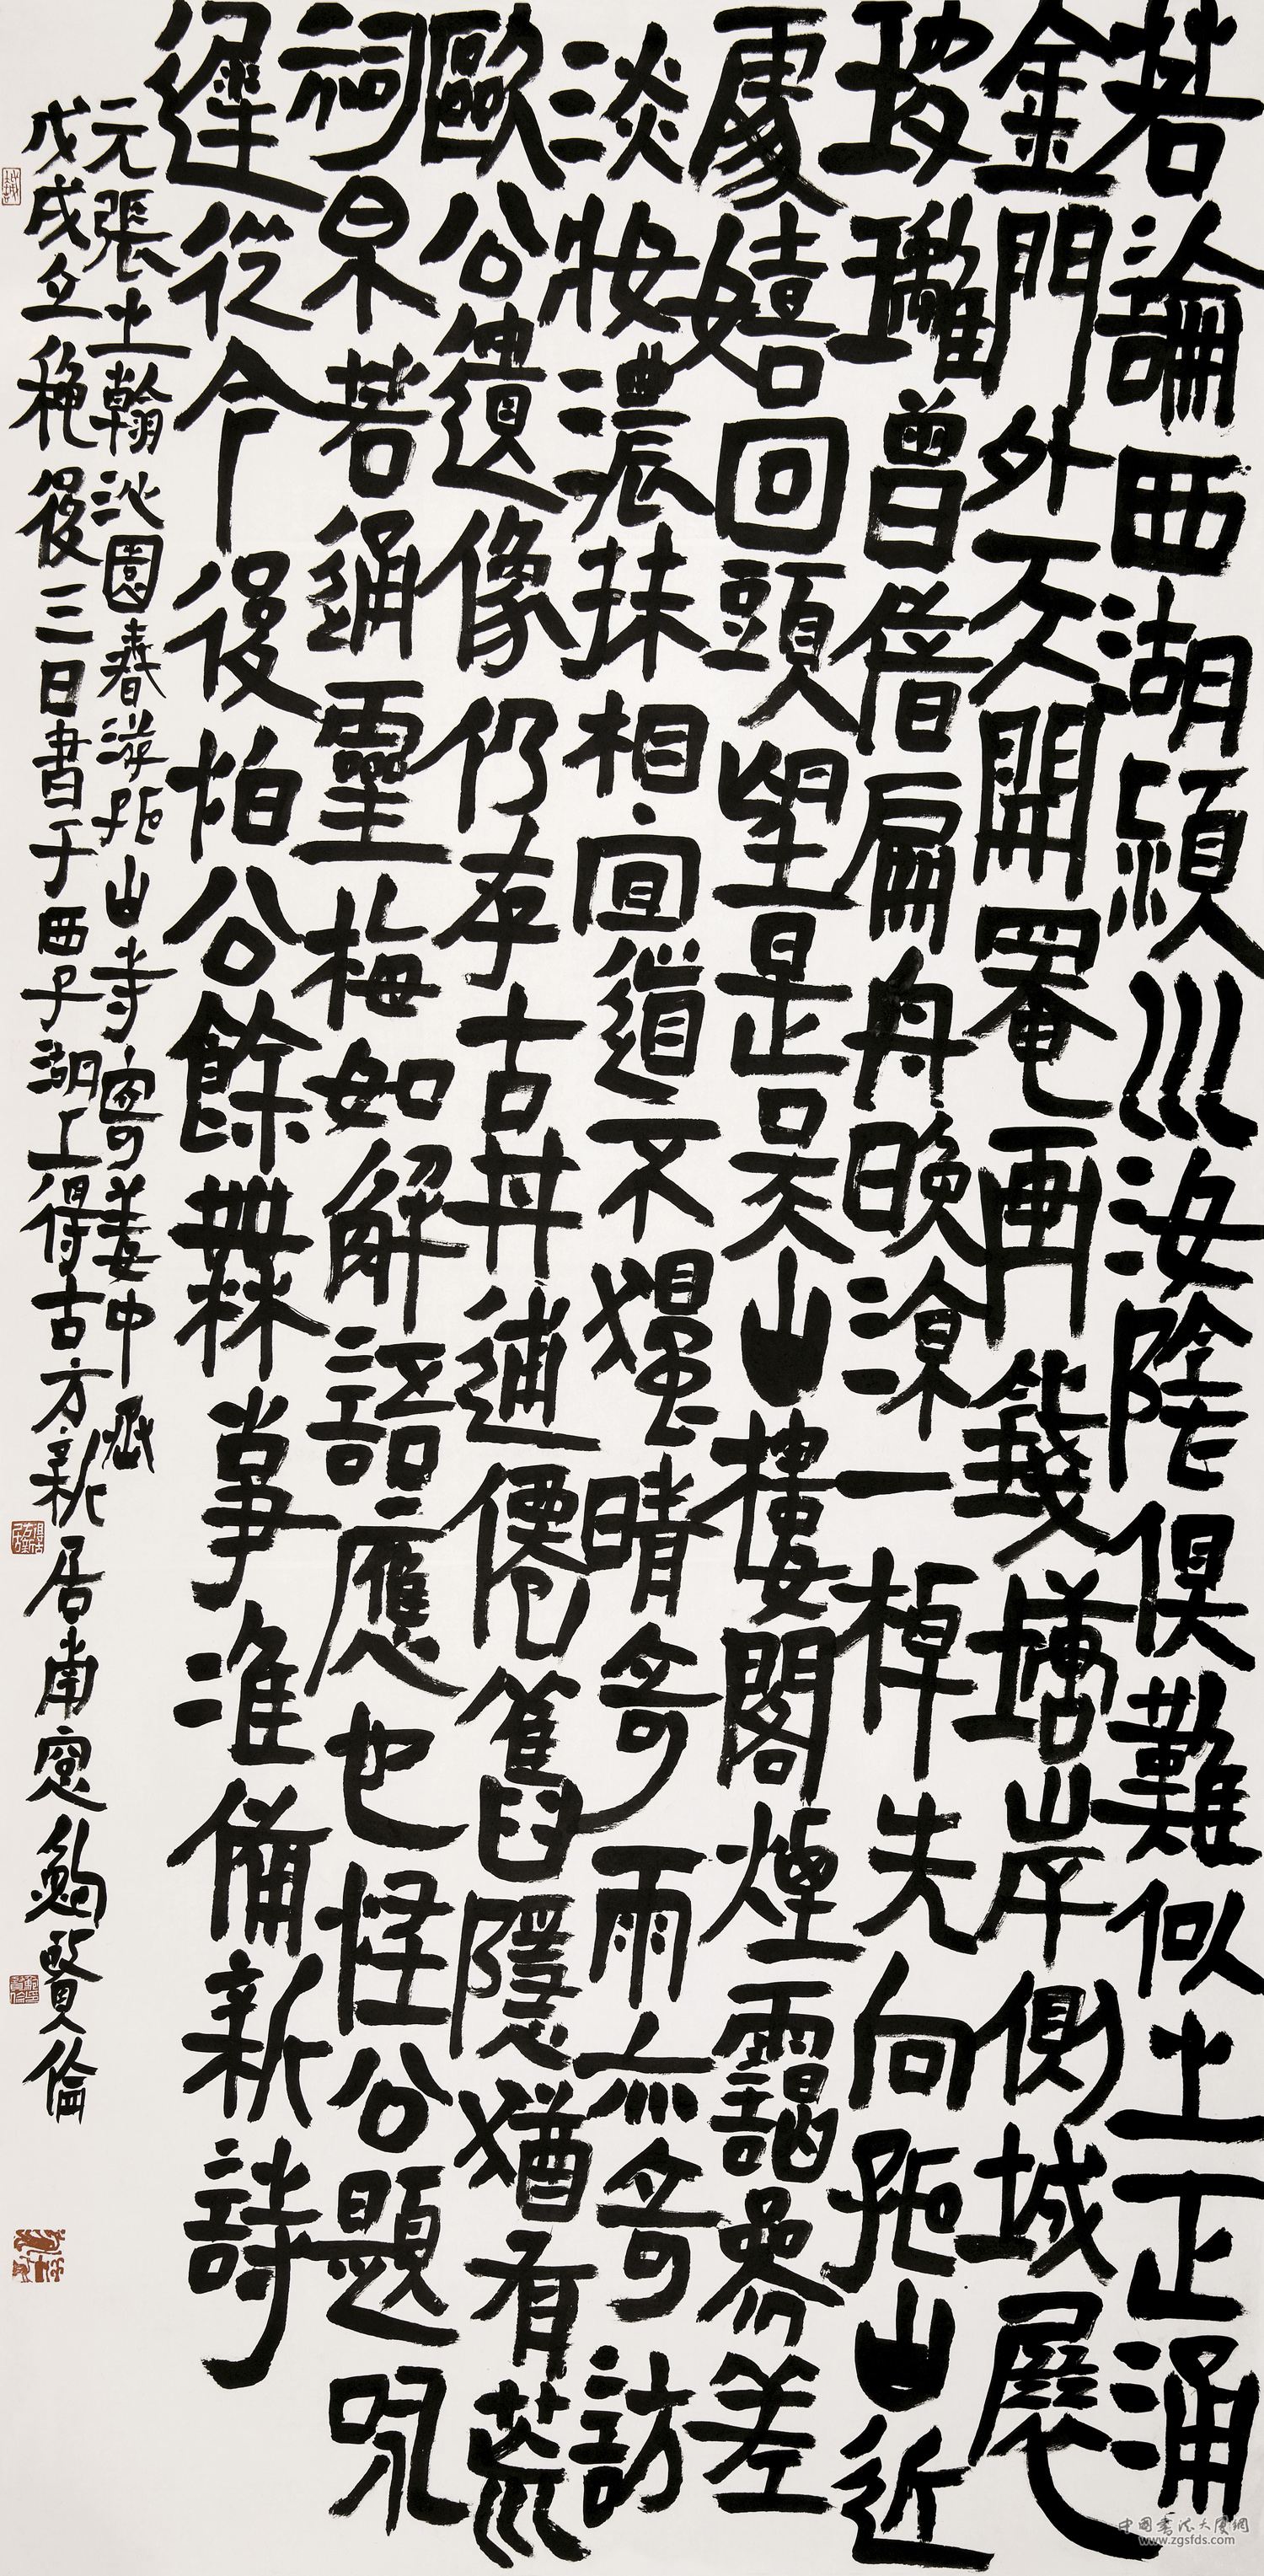 若論西湖潁川汝陰俱難似之正涌
金門外天開罨画錢塘岸側城展
玻璃曾借扁舟晚涼一棹先向孤山近
處嬉回頭望是吳山樓閣煙靄參差
淡妝濃抹相宜道不獨晴奇雨亦奇訪
歐公遺像仍存古井逋僊舊隱猶有荒
祠泉若通靈梅如解語應也怪公題咏
遲從今後怕公餘無事准備新詩
元張之翰沁園春游孤山寺寄姜中丞
戊戌立秋後三日書于西子湖上得古方新居南窗鮑賢倫
中国書法大厦網
www.zgsfds.com